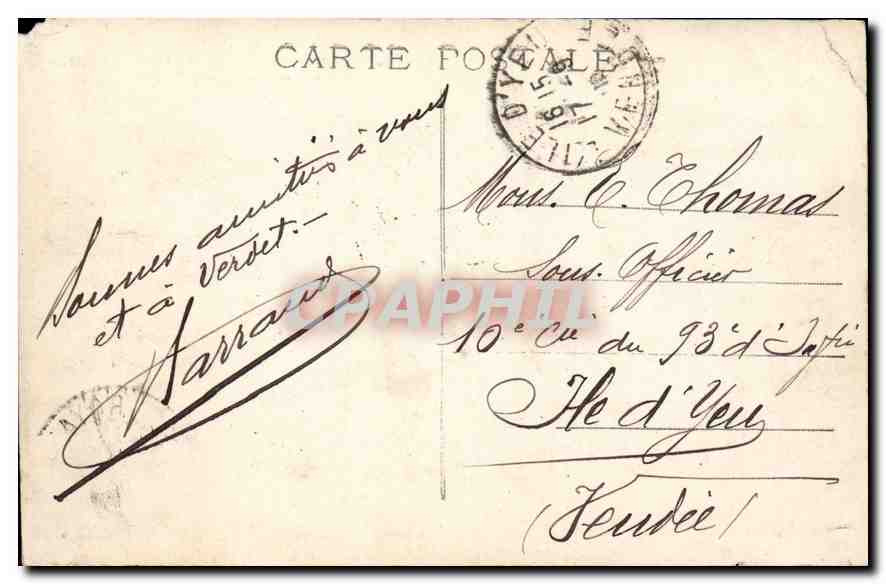 CARTE POSTALE
ILE D'YEU
16 15
17
Bonnes amitiés à vous
et à Verdet. -
Mons. E. Thomas
Sous. Officier
10e Cie du 93e d'Inftie
Ile d'Yeu
(Vendée)
CPAPHIL